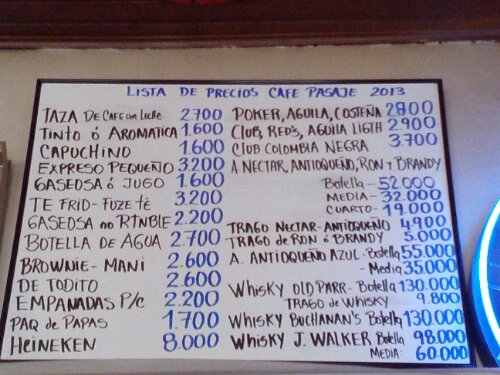 LISTA DE PRECIOS CAFE PASAJE 2013
TAZA DE CAFE CON LECHE 2.700
TINTO ó AROMATICA 1.600
CAPUCHINO 1.600
EXPRESO PEQUEÑO 3200
GASEOSA ó JUGO 1.600
TE FRIO - FUZE té 3.200
GASEOSA no RTNBLE 2.200
BOTELLA DE AGUA 2.700
BROWNIE - MANI 2.600
DE TODITO 2.600
EMPANADAS P/C 2.200
PAQ de PAPAS 1.700
HEINEKEN 8.000
POKER, AGUILA, COSTEÑA 2800
CLUB, RED'S, AGUILA LIGTH 2.900
CLUB COLOMBIA NEGRA 3.700
A NECTAR, ANTIOQUEÑO, RON Y BRANDY
Botella - 52.000
MEDIA - 32.000
CUARTO - 19.000
TRAGO NECTAR - ANTIOQUEÑO 4.900
TRAGO de RON ó BRANDY 5.000
A. ANTIOQUEÑO AZUL - Botella 55.000
- Media 35.000
WHISKY OLD PARR - Botella 130.000
TRAGO de WHISKY 9.800
WHISKY BUCHANAN'S Botella 130.000
WHISKY J. WALKER Botella 98.000
MEDIA: 60.000